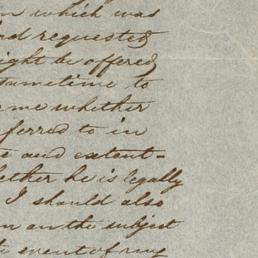 which was
and requested
ight be offered
sometime to
me whether
ferred to in
and extent-
hether he is legally
I should also
on on the subject
event of my